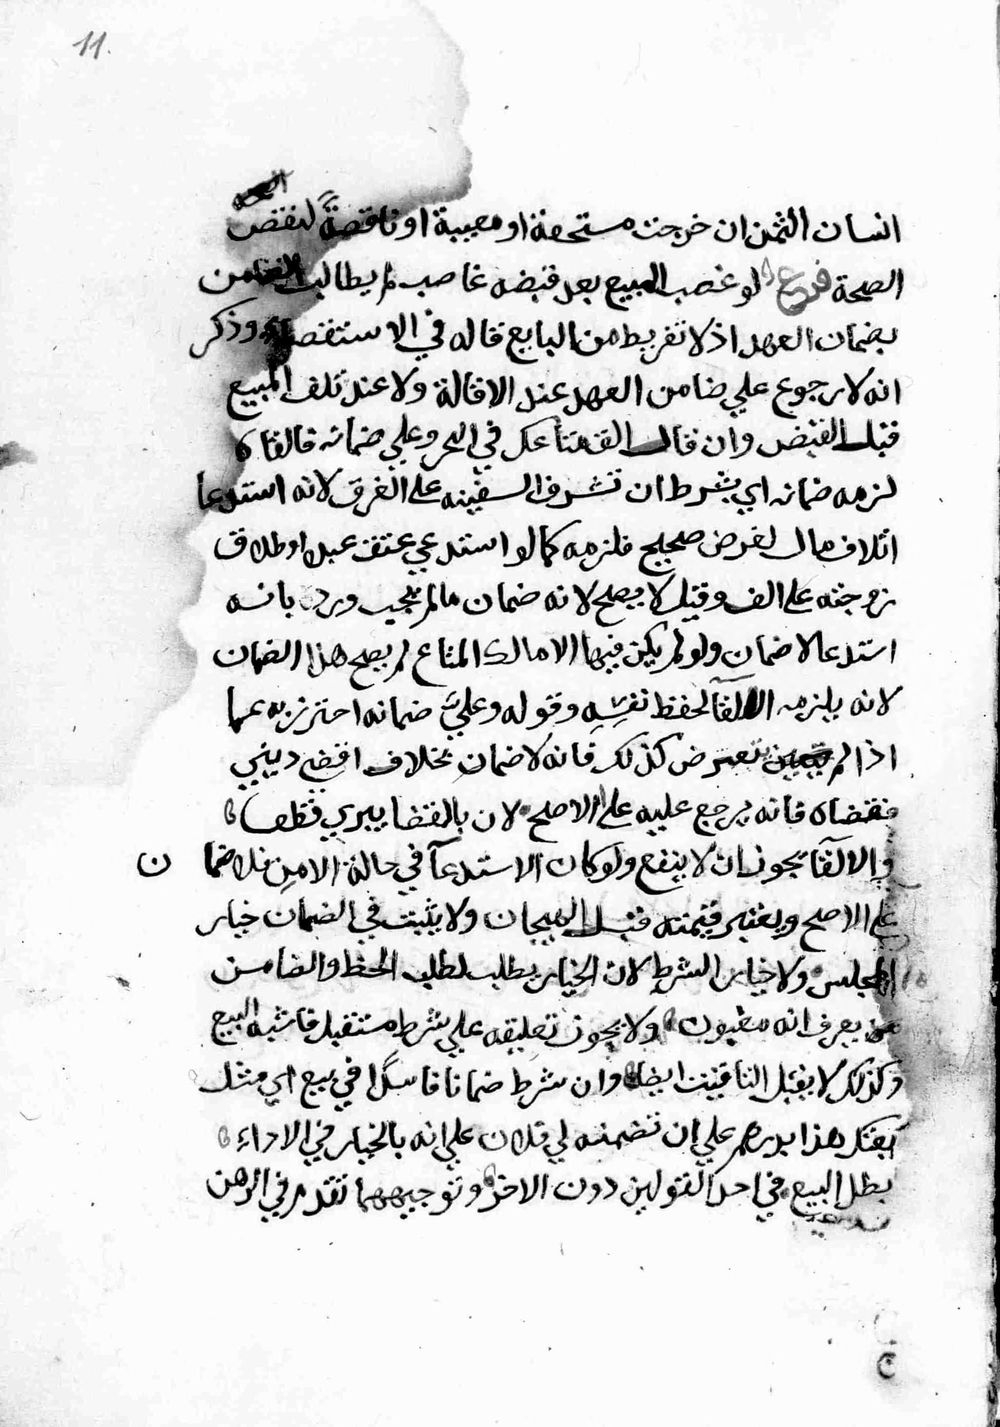 11.
انسان الثمن ان خرجت مستحقة او معيبة او ناقصةً لنقص
الصحة فرع لو غصب المبيع بعد قبضه غاصب لم يطالب الضامن
بضمان العهد اذ لا تفريط من البايع قاله في الاستقصاء وذكر
انه لا رجوع علي ضامن العهد عند الاقالة ولا عند تلف المبيع
قبل القبض وان قال الق متاعك في البحر وعلي ضمانه فالقاه
لزمه ضمانه اي بشرط ان تشرف السفينه على الغرق لانه استدعا
اتلاف مال لغرض صحيح فلزمه كما لو استدعي عتق عبد او طلاق
زوجته على الف وقيل لا يصح لانه ضمان مالم يجب ورد بانه
استدعا لا ضمان ولو لم يكن فيها الا مالك المتاع لم يصح هذا الضمان
لانه يلزمه الالقا لحفظ نفسه وقوله وعليّ ضمانه احترز به عما
اذا لم يتعرض كذلك فانه لا ضمان بخلاف اقض ديني
فقضاه فانه يرجع عليه على الاصح لان بالقضا يبري قطعا
والالقا يجوز ان لا ينفع ولو كان الاستدعآ في حالة الامن فلا ضما ن
على الاصح ويعتبر قيمته قبل الهيجان ولا يثبت في الضمان خيار
المجلس ولا خيار الشرط لان الخيار يطلب لطلب الحظ والضامن
يعرف انه مغبون ولا يجوز تعليقه علي شرط مستقبل فاشبه البيع
وكذلك لا يقبل التاقيت ايضا وان شرط ضمانا فاسدًا في بيع اي مثل
بعتك هذا بدرهم علي ان تضمنه لي فلان علي انه بالخيار في الاداء
بطل البيع في احد القولين دون الاخر وتوجيههما تقدم في الرهن